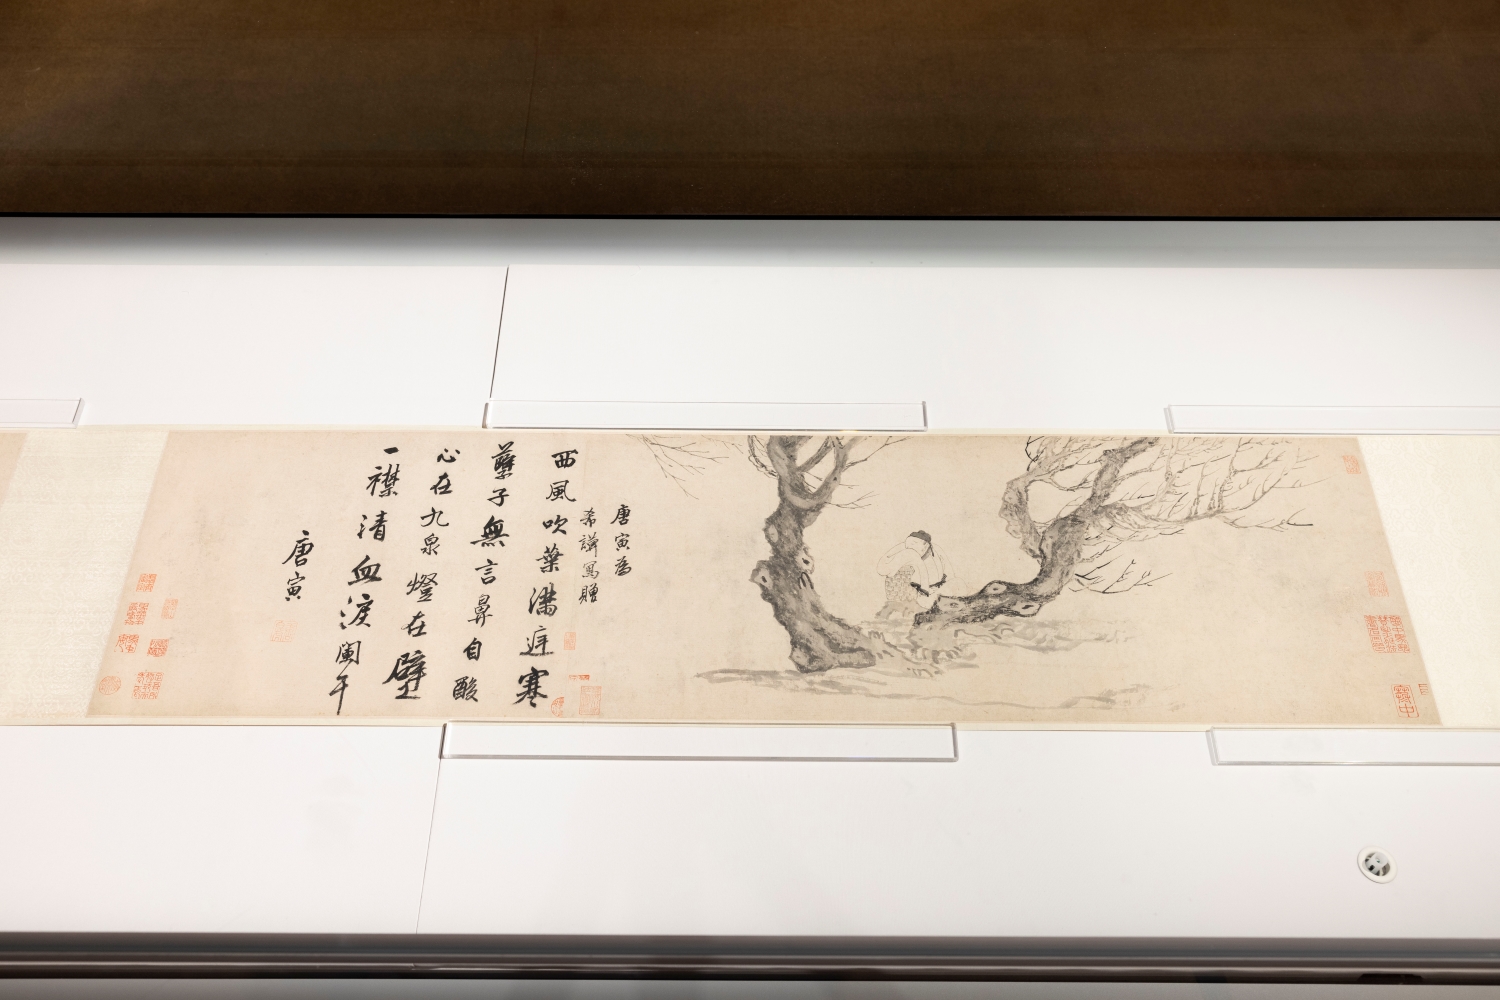 唐寅為
希謨寫贈
西風吹葉滿庭寒
孽子無言鼻自酸
心在九泉燈在壁
一襟清血淚闌干
唐寅